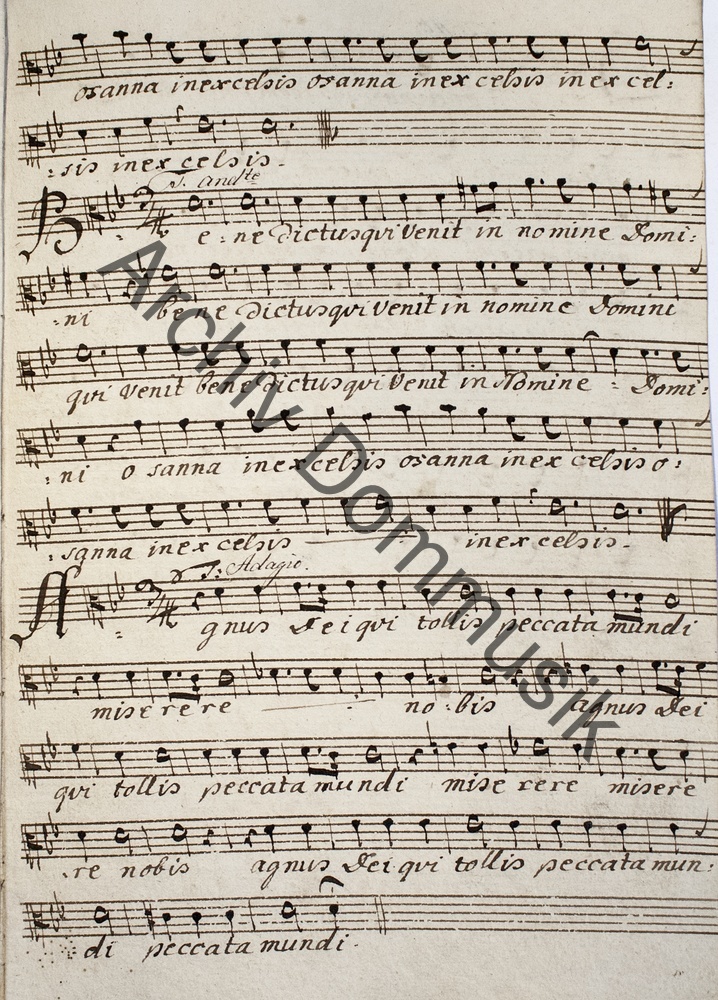 osanna in excelsis osanna in excelsis in excel:
:sis in excelsis.
S. And.te
Bene:dictus qui venit in nomine Domi:
:ni bene dictus qui venit in nomine Domini
qui venit benedictus qui venit in Nomine = Domi:
:ni osanna in excelsis osanna in excelsis o:
:sanna in excelsis in excelsis.
S: Adagio.
Agnus Dei qui tollis peccata mundi
miserere no:bis agnus Dei
qui tollis peccata mundi miserere misere
:re nobis agnus Dei qui tollis peccata mun:
:di peccata mundi.
Archiv Dommusik